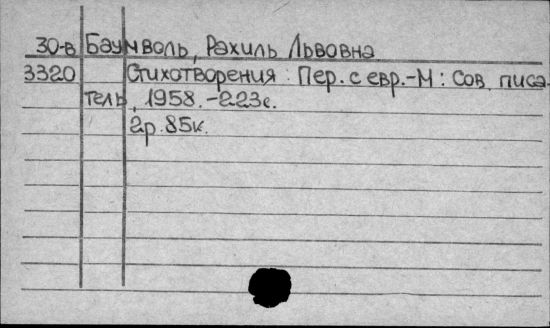 30-в Баумволь, Рахиль Львовна
3320 Стихотворения : Пер. с евр.-М : Сов. писа-
тель, 1958.-223с.
2р.85к.